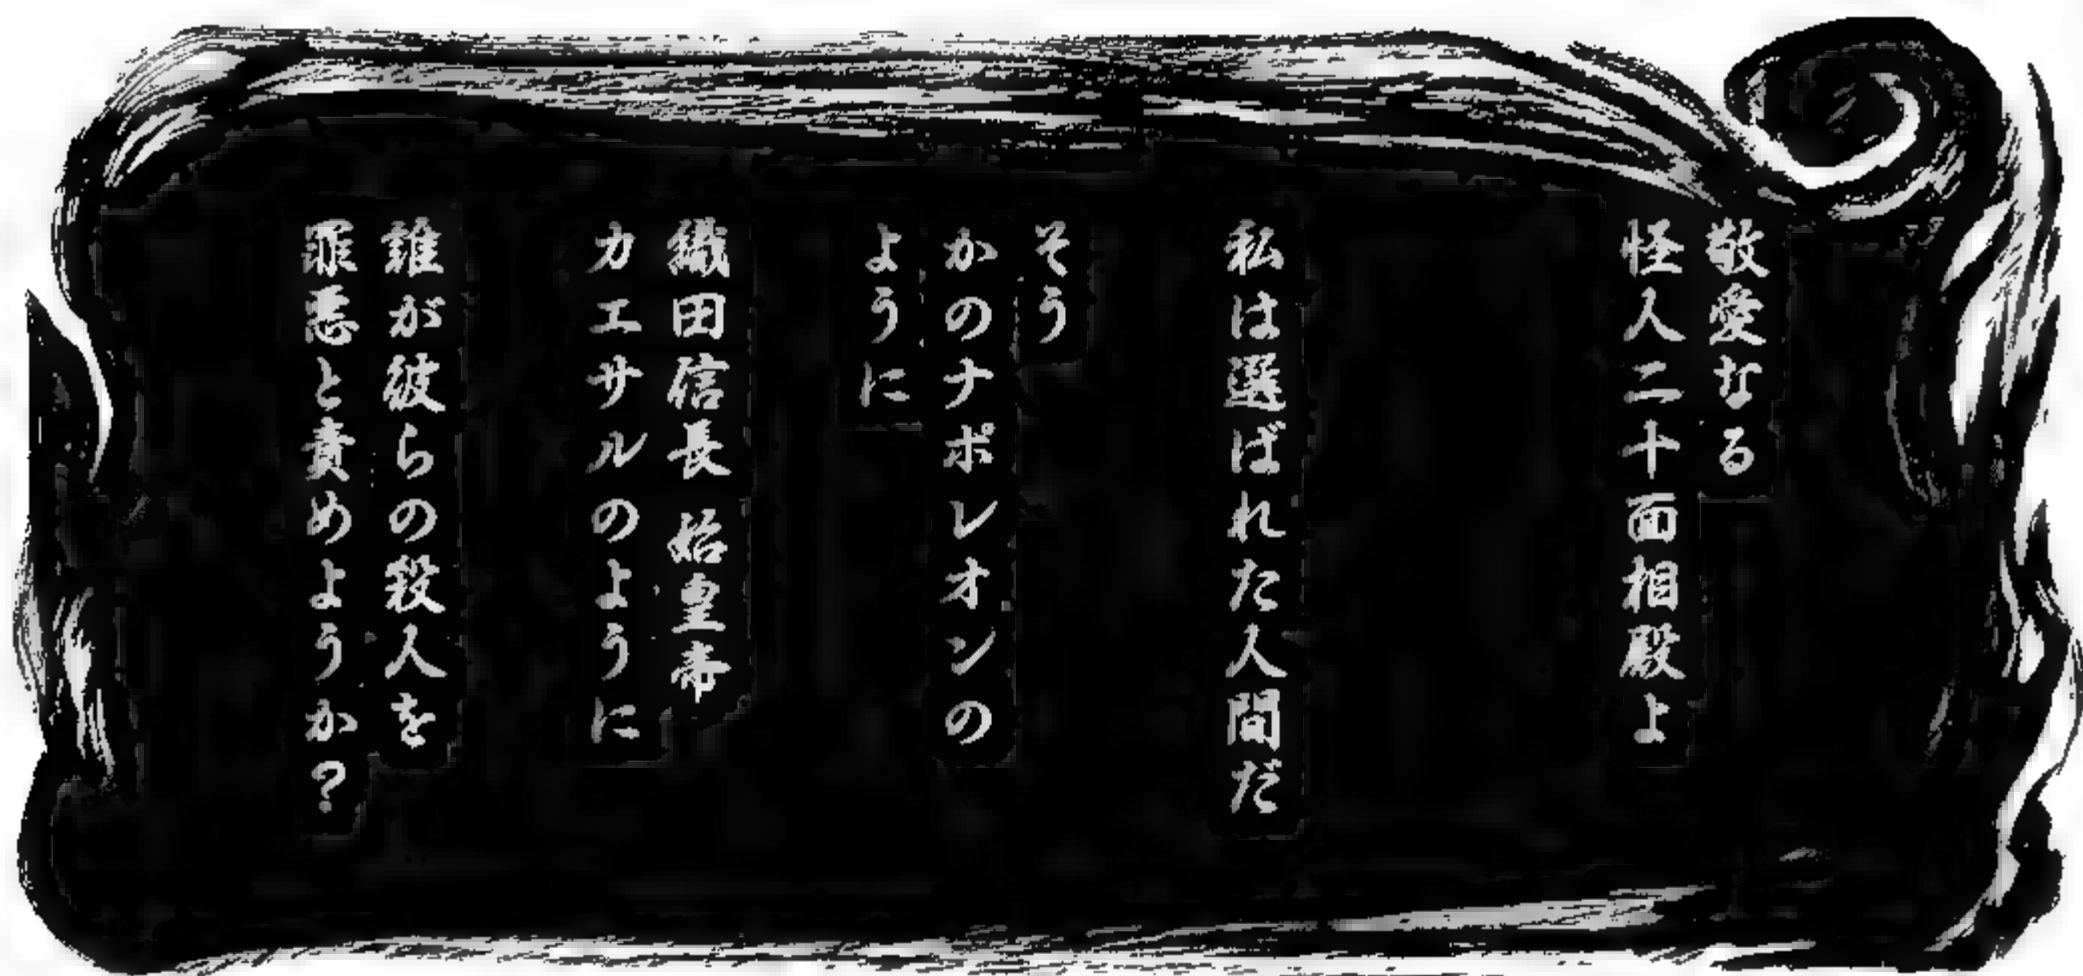 敬愛なる
怪人二十面相殿よ
私は選ばれた人間だ
そう
かのナポレオンの
ように
織田信長 始皇帝
カエサルのように
誰が彼らの殺人を
罪悪と責めようか?